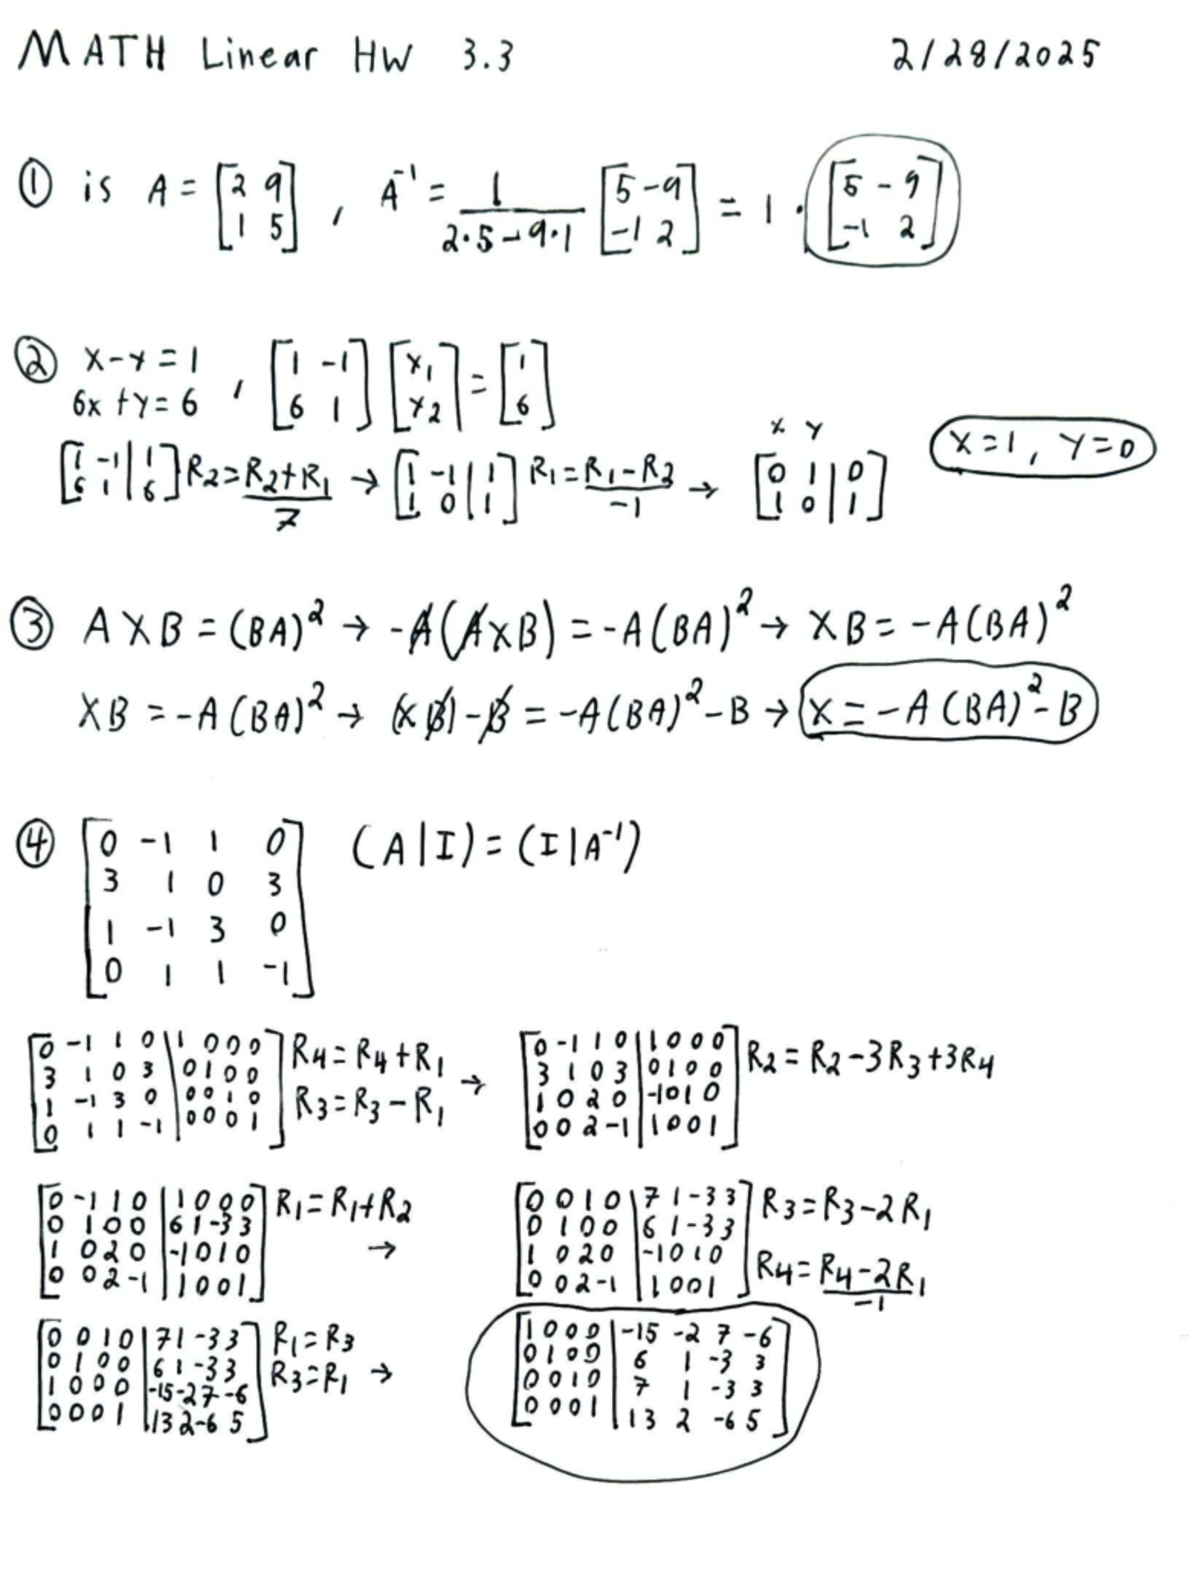 MATH Linear HW 3.3 2/28/2025
① is A = [2 9; 1 5] , A⁻¹ = 1/(2·5-9·1) [5 -9; -1 2] = 1 · [5 -9; -1 2]
② x-y=1
6x+y=6 , [1 -1; 6 1] [x₁; x₂] = [1; 6]
x y
[1 -1 | 1; 6 1 | 6] R₂=(R₂+R₁)/7 → [1 -1 | 1; 1 0 | 1] R₁=(R₁-R₂)/-1 → [0 1 | 0; 1 0 | 1] x=1, y=0
③ AXB = (BA)² → -A(AXB) = -A(BA)² → XB = -A(BA)²
XB = -A(BA)² → (XB)-B = -A(BA)²-B → X = -A(BA)²-B
④ [0 -1 1 0; 3 1 0 3; 1 -1 3 0; 0 1 1 -1] (A|I) = (I|A⁻¹)
[0 -1 1 0 | 1 0 0 0; 3 1 0 3 | 0 1 0 0; 1 -1 3 0 | 0 0 1 0; 0 1 1 -1 | 0 0 0 1] R₄=R₄+R₁ R₃=R₃-R₁ → [0 -1 1 0 | 1 0 0 0; 3 1 0 3 | 0 1 0 0; 1 0 2 0 | -1 0 1 0; 0 0 2 -1 | 1 0 0 1] R₂=R₂-3R₃+3R₄
[0 -1 1 0 | 1 0 0 0; 0 1 0 0 | 6 1 -3 3; 1 0 2 0 | -1 0 1 0; 0 0 2 -1 | 1 0 0 1] R₁=R₁+R₂ → [0 0 1 0 | 7 1 -3 3; 0 1 0 0 | 6 1 -3 3; 1 0 2 0 | -1 0 1 0; 0 0 2 -1 | 1 0 0 1] R₃=R₃-2R₁ R₄=(R₄-2R₁)/-1
[0 0 1 0 | 7 1 -3 3; 0 1 0 0 | 6 1 -3 3; 1 0 0 0 | -15 -2 7 -6; 0 0 0 1 | 13 2 -6 5] R₁=R₃ R₃=R₁ → [1 0 0 0 | -15 -2 7 -6; 0 1 0 0 | 6 1 -3 3; 0 0 1 0 | 7 1 -3 3; 0 0 0 1 | 13 2 -6 5]